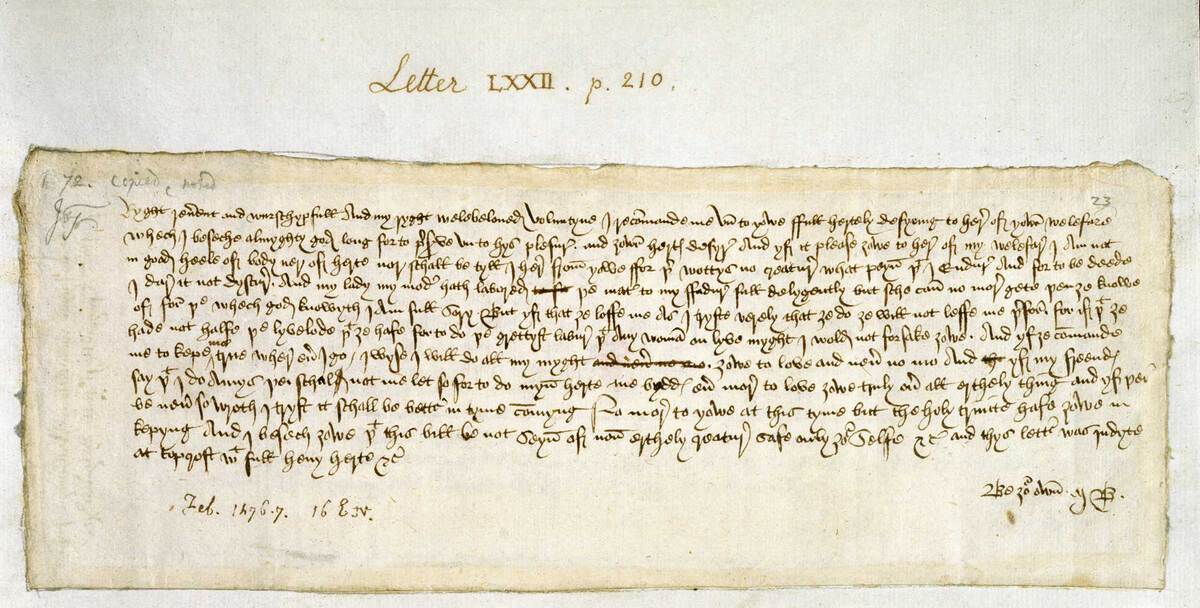 Letter LXXII. p. 210.
72. copied noted
23
Ryght reuerent and wurschypfull And my ryght welebeloued Voluntyne I recomande me vn to yowe ffull hertely desyring to here of yowr welefare
whech I beseche almyghty god long for to pserve vn to hys plesur and yowr herts desyr And yf it please yowe to here of my welefar I Am not
in good heele of body ner of herte nor schall be tyll I her from yowe ffor þr wottys no creatur what peyn þt I Endur And for to be deede
I dare it not dyscur. And my lady my modr hath labored þe matr to my ffadur full delygently but sche can no mor gete þen ȝe knowe
of for þe whech god knowyth I am full sory But yf that ȝe loffe me As I tryste verely that ȝe do ȝe will not leffe me þrfor. for if þt ȝe
hade not halfe þe lyvelode þt ȝe hafe for to do þe grettyst labur þt Any woman on lyve myght I wold not forsake yowe. And yf ȝe comande
me to kepe me true wher eur I go I wyse I will do all my myght yowe to love and neur no mo And yf my freends
say þt I do Amys þei schal not me let so for to do myn herte me bydds eur mor to love yowe truly our all erthely thing and yf þei
be neur so wroth I tryst it schall be bettr in tyme comyng No mor to yowe at this tyme but the holy trinite hafe yowe in
kepyng And I besech yowe þt this bill be not seyn of non erthely creatur safe only yor selfe &c and thys lettr was indyte
at topcroft wt full heuy herte &c
Be yor own M B.
Feb. 1476.7. 16 E. 4.